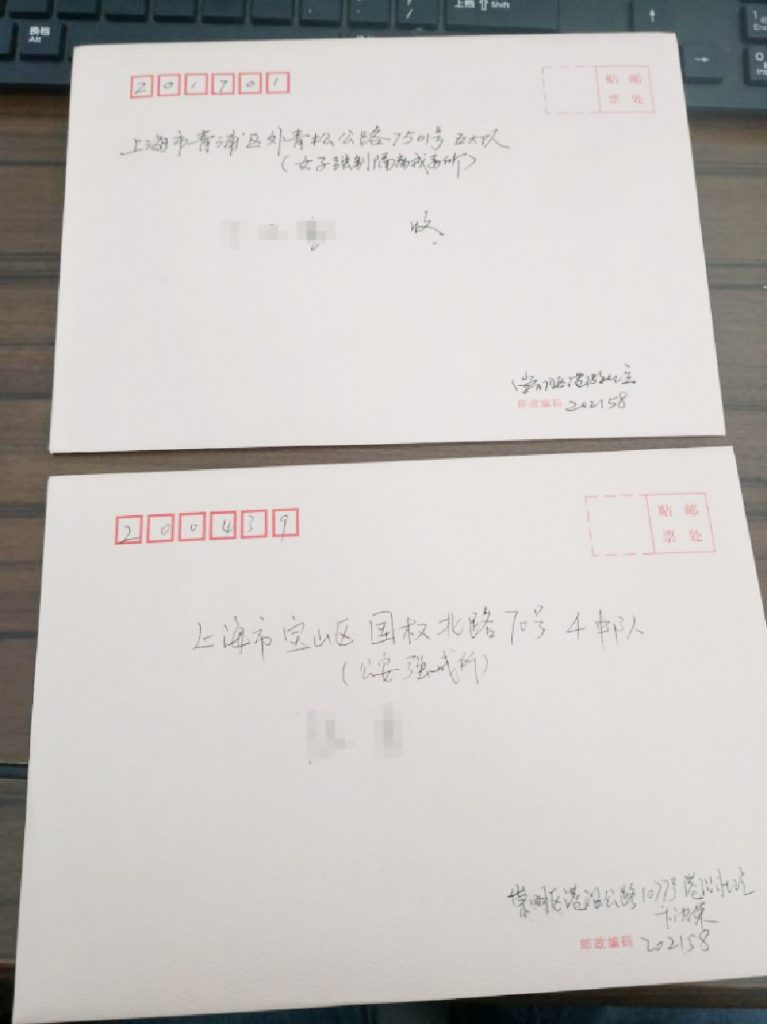 换档
Alt
上档 ⇧ Shift
201701
贴 邮
票 处
上海市青浦区外青松公路7501号五大队
(女子强制隔离戒毒所)
收
邮政编码 202158
200439
贴 邮
票 处
上海市宝山区国权北路70号4中队
(公安强戒所)
崇明区港沿公路1077号港沿
邮政编码 202158